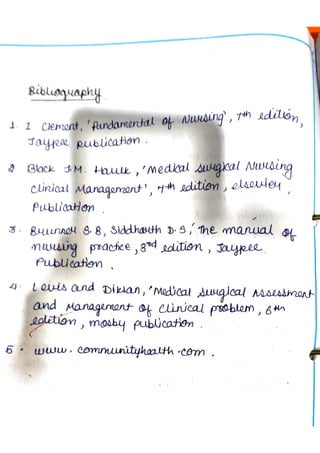 Bibliography
1. I Clement, 'fundamental of Nursing', 7th edition,
Jaypee publication.
2 Black J.M. Hawk, 'Medical surgical Nursing
Clinical Management', 7th edition, elsevier,
Publication.
3. Brunner S.B, Siddharth D.S,' The manual of
nursing practice, 3rd edition, Jaypee
Publication.
4. Lewis and Diksan, 'Medical Surgical Assessment
and Management of clinical problem, 6th
edition, mosby publication.
5 - www.communityhealth.com.